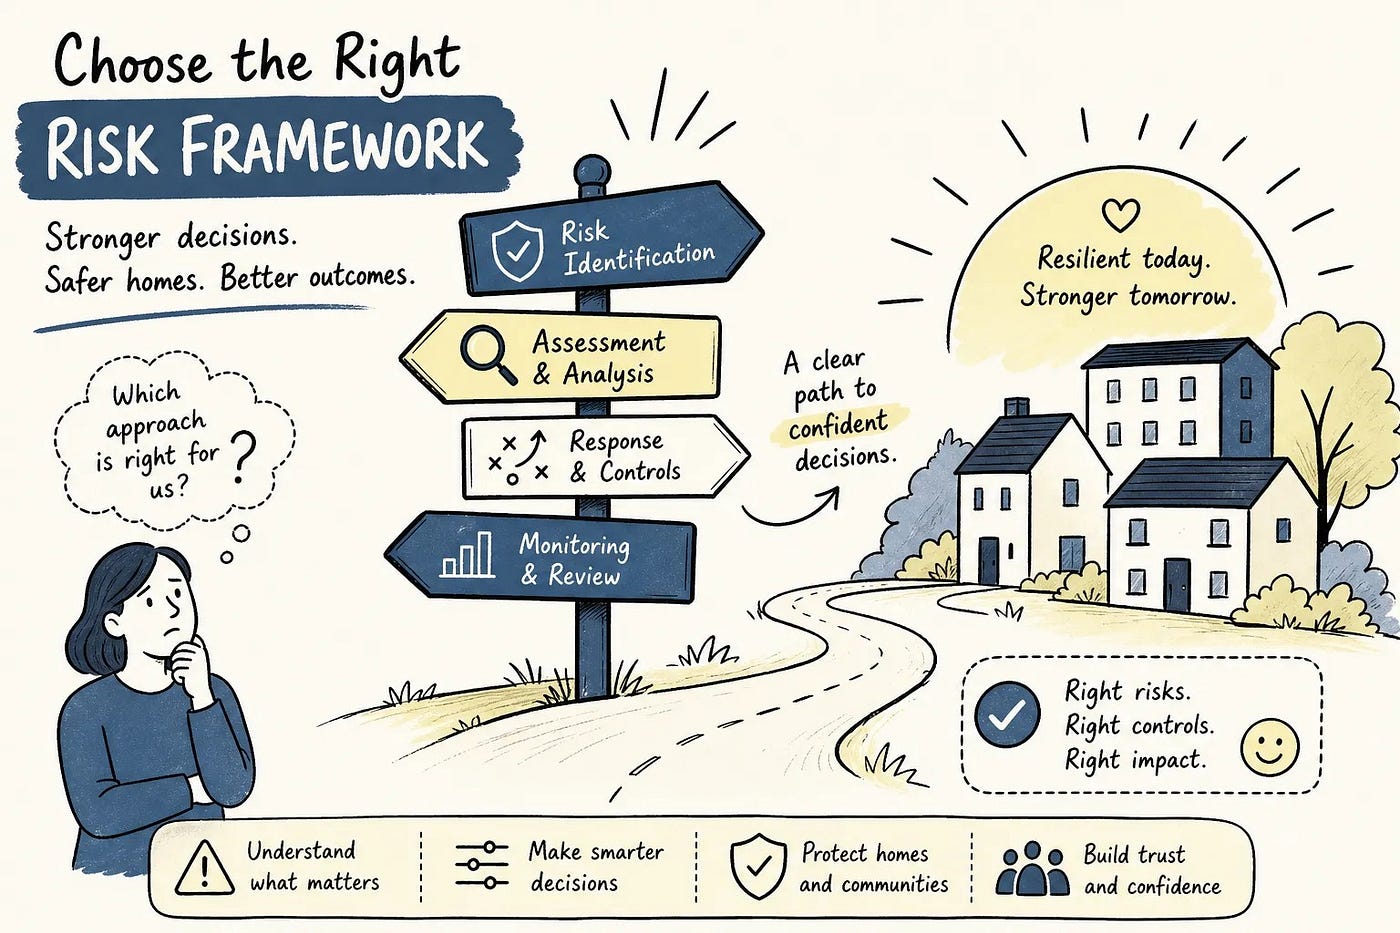 Choose the Right
RISK FRAMEWORK
Stronger decisions.
Safer homes. Better outcomes.
Which
approach
is right for
us?
?
Risk
Identification
Assessment
& Analysis
Response
& Controls
Monitoring
& Review
A clear
path to
confident
decisions.
Resilient today.
Stronger tomorrow.
Right risks.
Right controls.
Right impact.
Understand
what matters
Make smarter
decisions
Protect homes
and communities
Build trust
and confidence